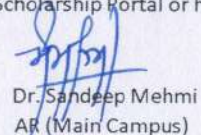 Scholarship Portal or
Dr. Sandeep Mehmi
AR (Main Campus)